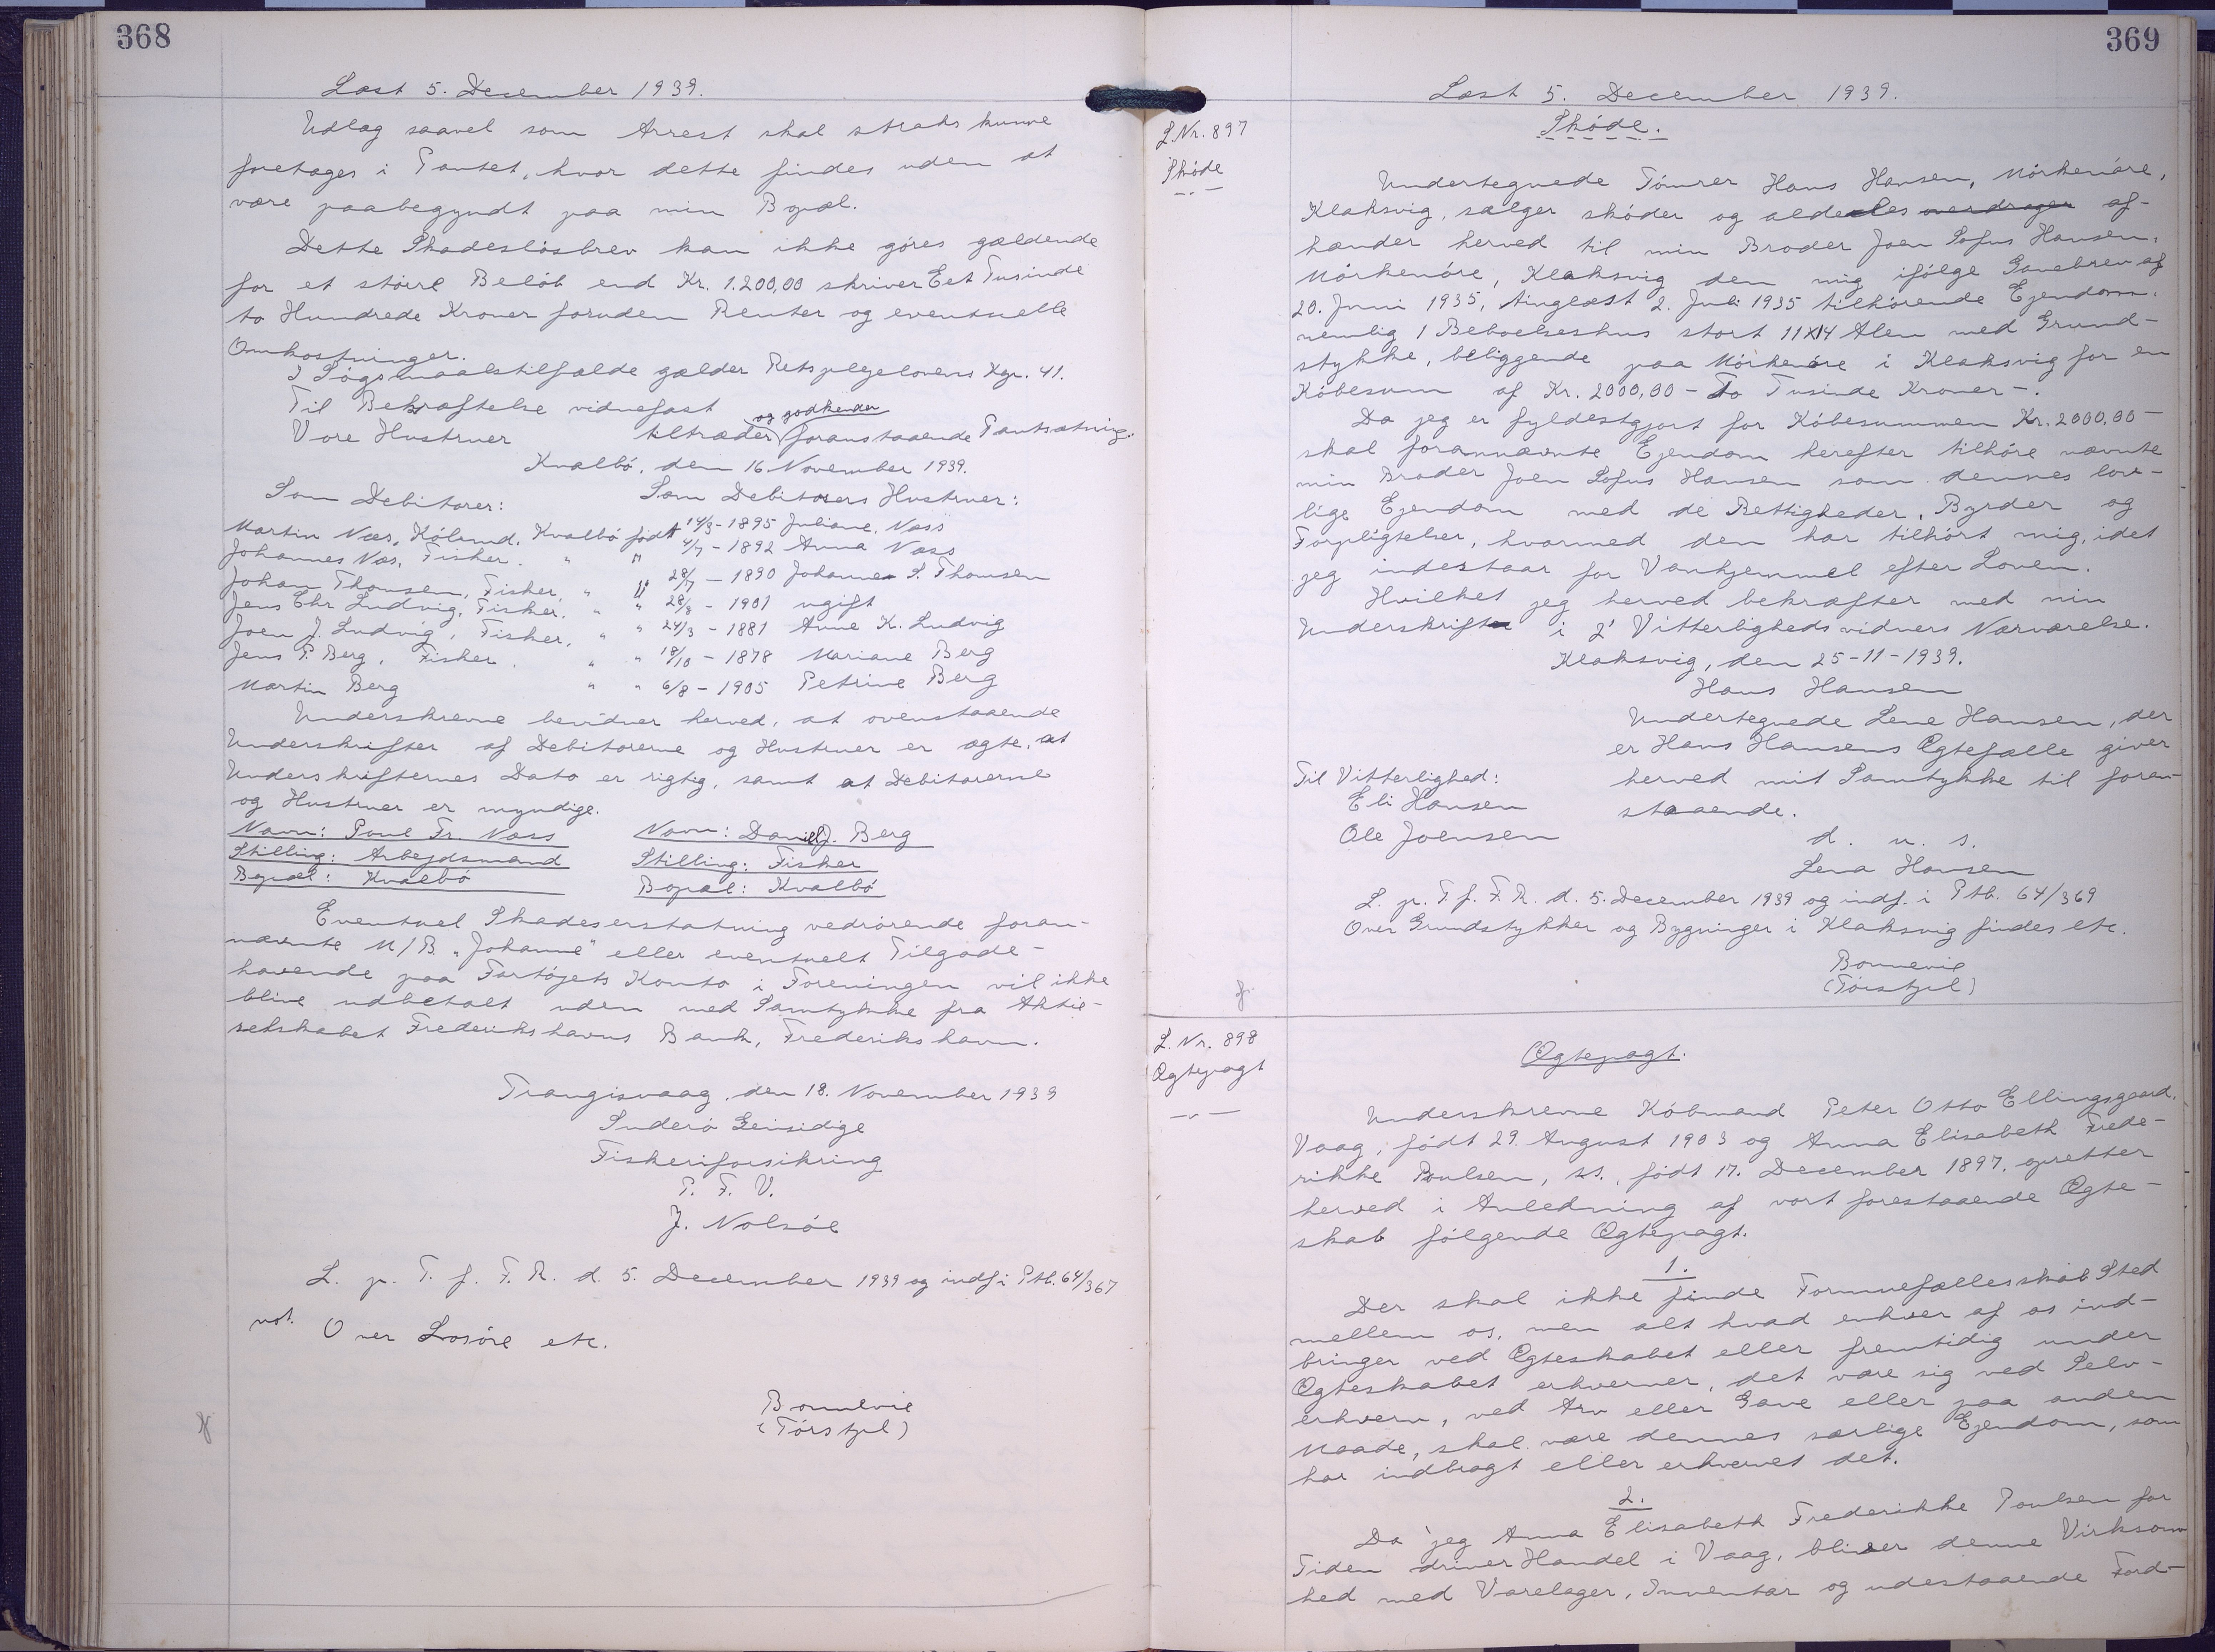 368
Læst 5. December 1939.
Udlæg saavel som Arrest skal straks kunne
foretages i Pantet, hvor dette findes uden at
være paabegyndt paa min Bopæl.
Dette Skadesløsbrev kan ikke gøres gældende
for et større Beløb end Kr. 1.200,00 skriver Eet Tusinde
to Hundrede Kroner foruden Renter og eventuelle
Omkostninger.
I Søgsmaalstilfælde gælder Retsplejelovens Kap. 41.
Til Bekræftelse vidnefast
og godkender
Vore Hustruer tiltræder foranstaaende Pantsætning.
Kvalbø, den 16. November 1939.
Som Debitorer: Som Debitorers Hustruer:
Martin Næs, Købmd. Kvalbø født 14/3-1895 Juliane Næss
Johannes Næs, Fisher. " " 4/7-1892 Anna Næss
Johan Thomsen, Fisker, " " 28/7-1890 Johanne S. Thomsen
Jens Chr Ludvig, Fisker, " " 28/8-1901 ugift
Joen J. Ludvig, Fisker, " " 24/3-1881 Anne K. Ludvig
Jens P. Berg, Fisker. " " 18/10-1878 Mariane Berg
Martin Berg " " 6/8-1905 Petrine Berg
Underskrevne bevidner herved, at ovenstaaende
Underskrifter af Debitorerne og Hustruer er ægte, at
Underskrifternes Dato er rigtig, samt at Debitorerne
og Hustruer er myndige.
Navn: Poul Fr. Næss Navn: Daniel J. Berg
Stilling: Arbejdsmand Stilling: Fisker
Bopæl: Kvalbø Bopæl: Kvalbø
Eventuel Skadeserstatning vedrørende foran-
nævnte M/B. "Johanne" eller eventuelt Tilgode-
havende paa Fartøjets Konto i Foreningen vil ikke
blive udbetalt uden med Samtykke fra Aktie-
selskabet Frederikshavns Bank, Frederikshavn.
Trangisvaag, den 18. November 1939
Suderø Gensidige
Fiskeriforsikring
P. F. V.
J. Nolsøe
L. p. T. f. F. R. d. 5. December 1939 og indf. i Ptb. 64/367
not. Over Løsøre etc.
Bonnevie
(Tórstjel)
369
Læst 5. December 1939.
L.Nr. 897
Skøde
Skøde.
Undertegnede Tømrer Hans Hansen, Mørkenøre,
Klaksvig, sælger skøder og aldeles overdrager af-
hænder herved til min Broder Joen Sofus Hansen,
Mørkenøre, Klaksvig den mig ifølge Gavebrev af
20. Juni 1935, tinglæst 2. Juli 1935 tilhørende Ejendom.
nemlig 1 Beboelseshus stort 11X14 Alen med Grund-
stykke, beliggende paa Mørkenøre i Klaksvig for en
Købesum af Kr. 2000,00 - To Tusinde Kroner -.
Da jeg er fyldestgjort for Købesummen Kr. 2000,00 -
skal forannævnte Ejendom herefter tilhøre nævnte
min Broder Joen Sofus Hansen som dennes lov-
lige Ejendom med de Rettigheder, Byrder og
Forpligtelser, hvormed den har tilhørt mig, idet
jeg indestaar for Vanhjemmel efter Loven.
Hvilket jeg herved bekræfter med min
Underskrift i 2 Vitterlighedsvidners Nærværelse.
Klaksvig, den 25-11-1939.
Hans Hansen
Undertegnede Lene Hansen, der
er Hans Hansens Ægtefælle giver
Til Vitterlighed: herved mit Samtykke til foran-
Eli Hansen staaende.
Ole Joensen d. u. s.
Lena Hansen
L. p. T. f. F. R. d. 5. December 1939 og indf. i Ptb. 64/369
Over Grundstykker og Bygninger i Klaksvig findes etc.
Bonnevie
(Tórstjel)
L. Nr. 898
Ægtepagt
Ægtepagt.
Underskrevne Købmand Peter Otto Ellingsgaard,
Vaag, født 29. August 1903 og Anna Elisabeth Frede-
rikke Poulsen, ss., født 17. December 1897, opretter
herved i Anledning af vort forestaaende Ægte-
skab følgende Ægtepagt.
1.
Der skal ikke finde Formuefællesskab Sted
mellem os, men alt hvad enhver af os ind-
bringer ved Ægteskabet eller fremtidig under
Ægteskabet erhverver, det være sig ved Selv-
erhverv, ved Arv eller Gave eller paa anden
Maade, skal være dennes særlige Ejendom, som
har indbragt eller erhvervet det.
2.
Da jeg Anna Elisabeth Frederikke Poulsen for
Tiden driver Handel i Vaag, bliver denne Virksom-
hed med Varelager, Inventar og udestaaende Ford-